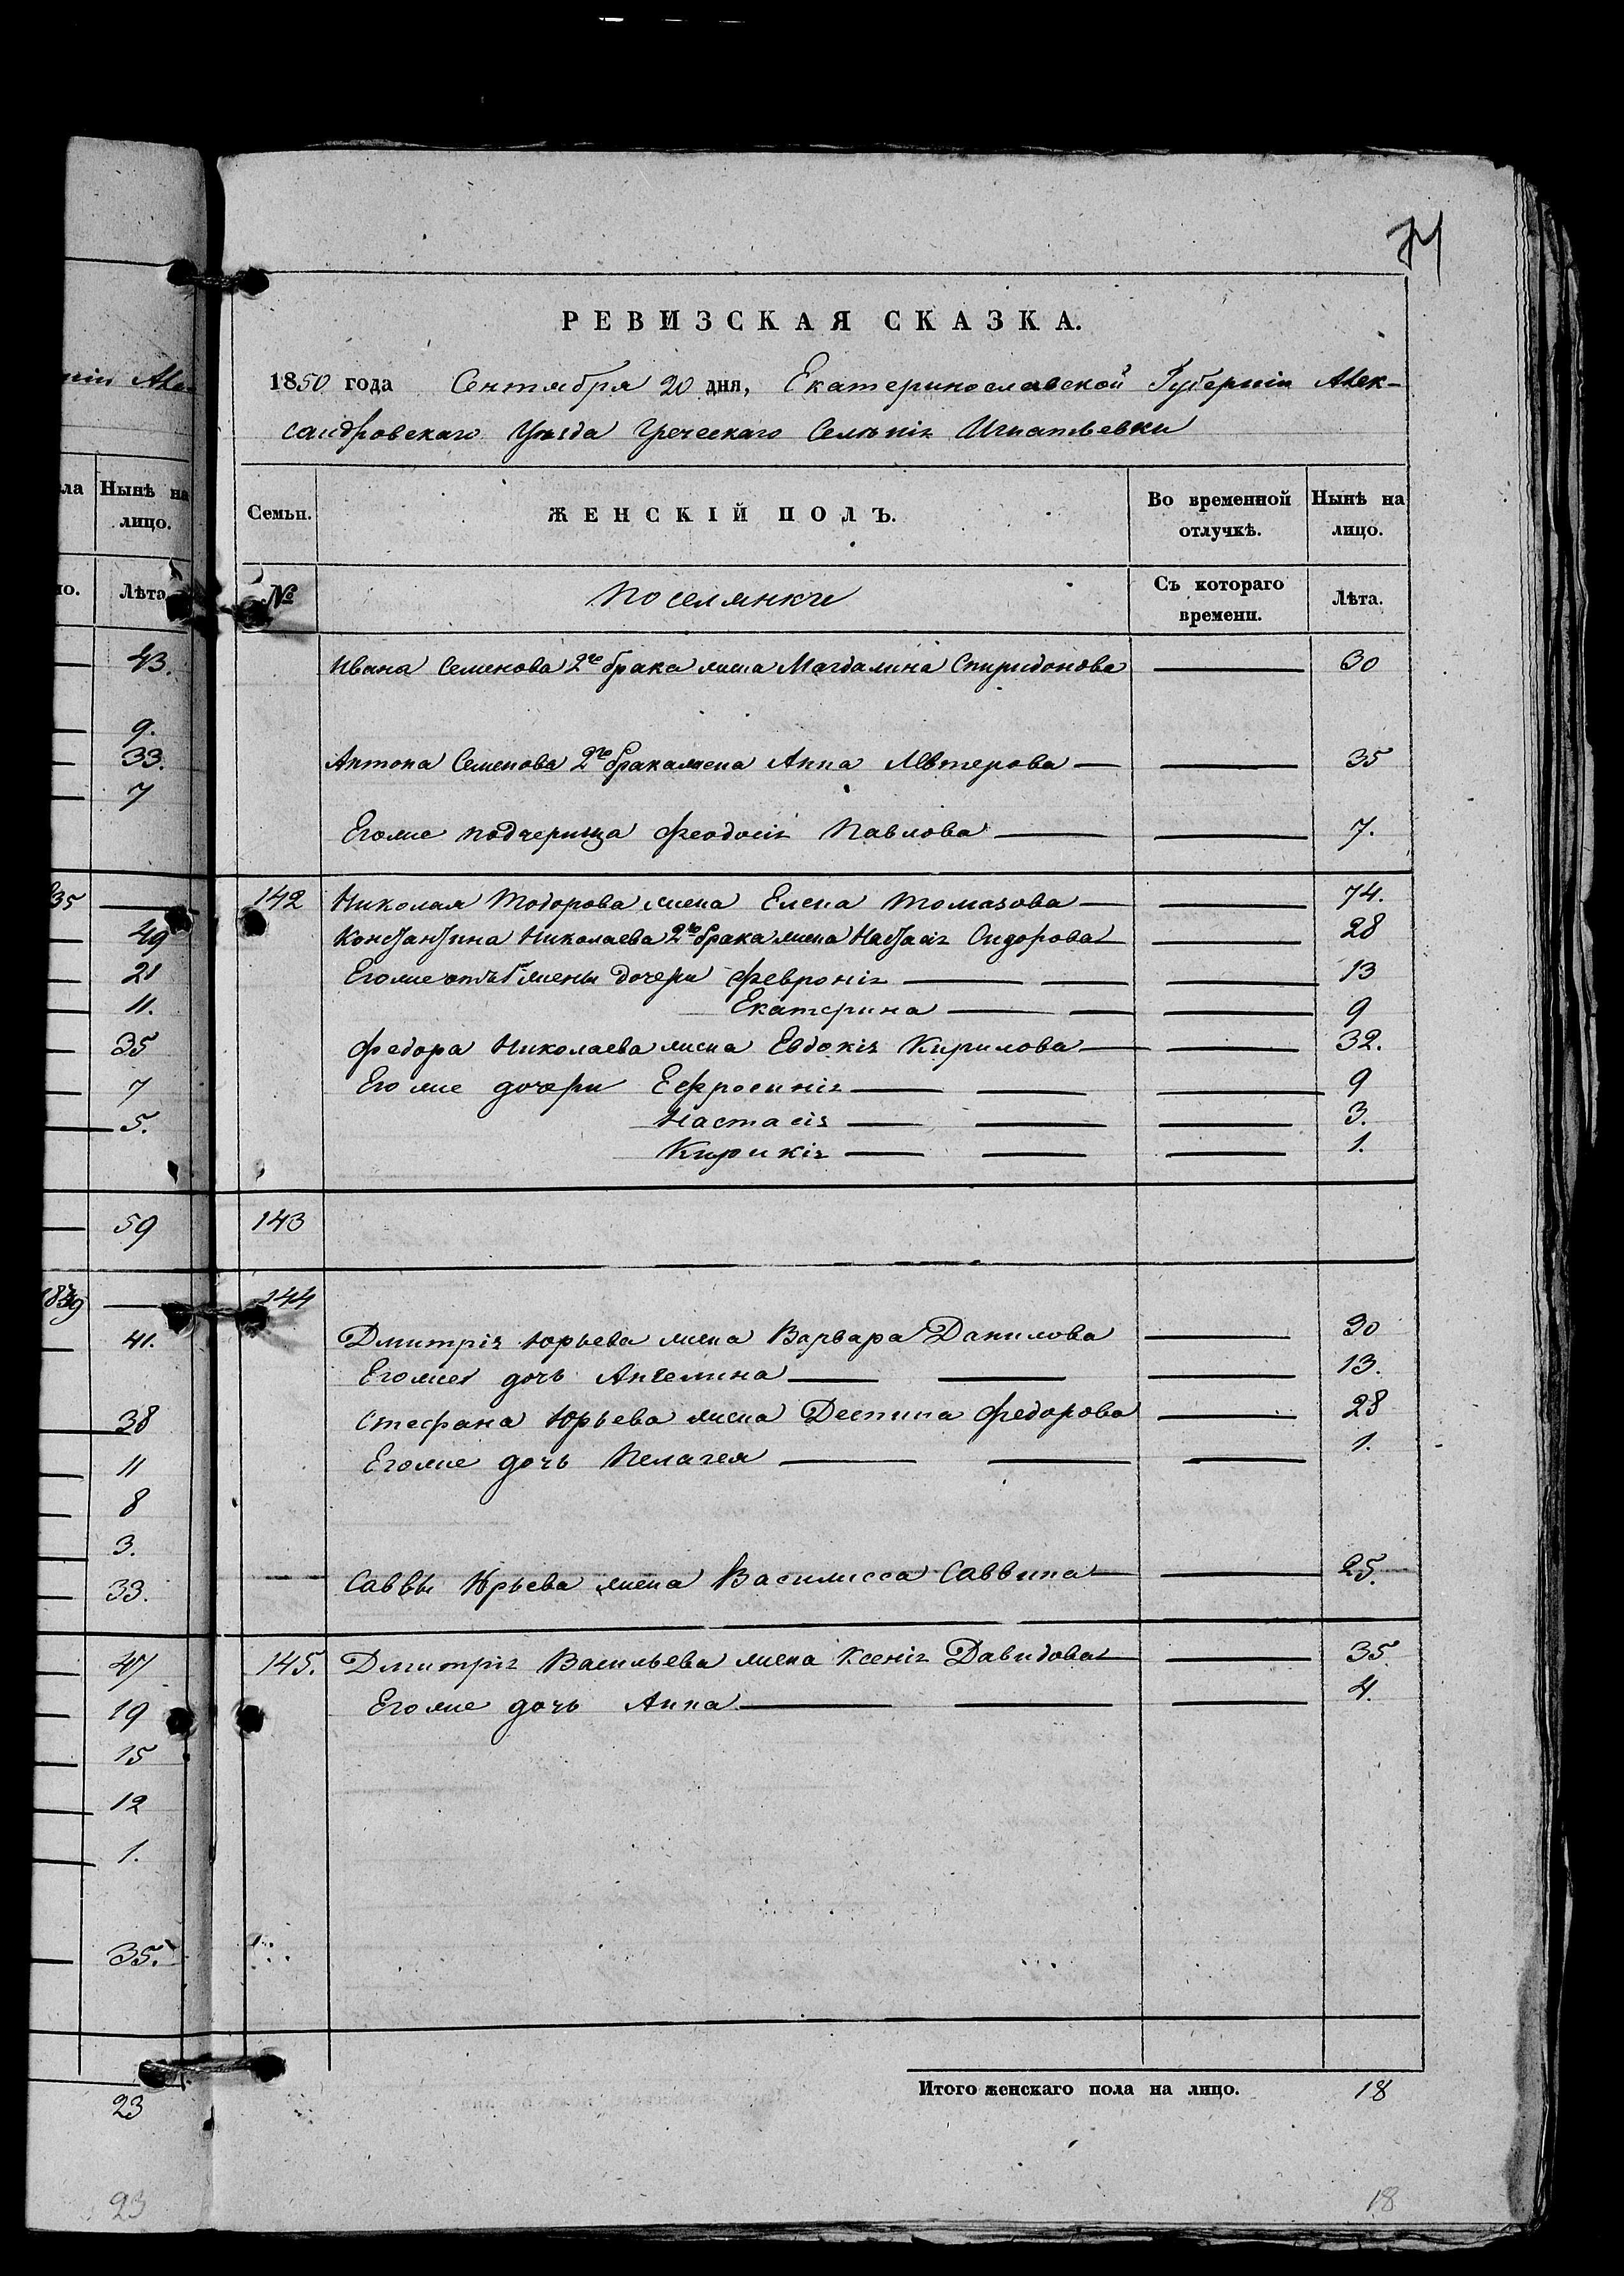 74
нiи Алек
ла
Нынѣ на
лицо.
но.
Лѣта
43.
9.
33.
7
835
49
21
11.
35
7
5.
59
1839
41.
38
11
8
3.
33.
47
19
15
12
1.
35.
23
23
РЕВИЗСКАЯ СКАЗКА.
1850 года Сентября 20 дня, Екатеринославской Губернiи Алек-
сандровскаго Уѣзда Греческаго Селенiя Игнатьевки
Семьи. ЖЕНСКIЙ ПОЛЪ. Во временной отлучкѣ. Нынѣ на лицо.
№ Поселянки Съ котораго времени. Лѣта.
Ивана Семенова 2го брака жена Магдалина Спиридонова — 30
Антона Семенова 2го брака жена Анна Лефтерова — 35
Его же подчерица Феодосiя Павлова — 7.
142 Николая Тодорова жена Елена Томазова — 74.
Константина Николаева 2го брака жена Настасiя Сидорова — 28
Его же отъ 1й жены дочери Февронiя — 13
Екатерина — 9
Федора Николаева жена Евдокiя Кирилова — 32.
Его же дочери Ефросинiя — 9
Настасiя — 3.
Кирикiя — 1.
143
144
Дмитрiя Юрьева жена Варвара Данилова — 30
Его же дочь Ангелина — 13.
Стефана Юрьева жена Деспина Федорова — 28
Его же дочь Пелагея — 1.
Саввы Юрьева жена Василисса Саввина — 25.
145. Дмитрiя Васильева жена Ксенiя Давидова — 35
Его же дочь Анна — 4.
Итого женскаго пола на лицо. 18
18